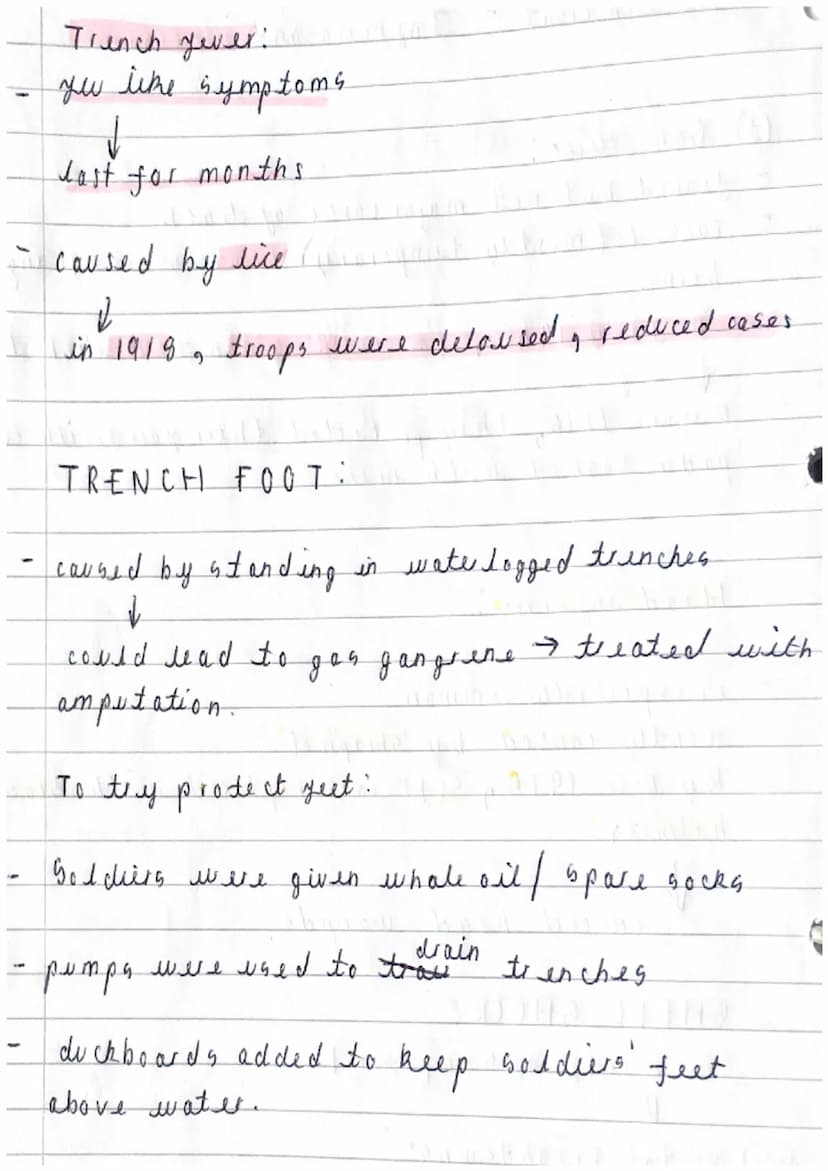 Trench fever:
- flu like symptoms
↓
last for months
- caused by lice
↓
in 1918, troops were deloused, reduced cases
TRENCH FOOT:
- caused by standing in waterlogged trenches
↓
could lead to gas gangrene → treated with
amputation.
To try protect feet:
- Soldiers were given whale oil / spare socks
- pumps were used to drain trenches
- duckboards added to keep soldiers' feet
above water.